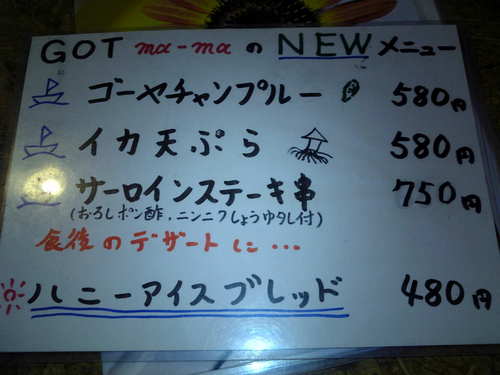 GOT ma-ma の NEW メニュー
ゴーヤチャンプルー 580円
イカ天ぷら 580円
サーロインステーキ串 750円
(おろしポン酢、ニンニクしょうゆタレ付)
食後のデザートに…
ハニーアイスブレッド 480円